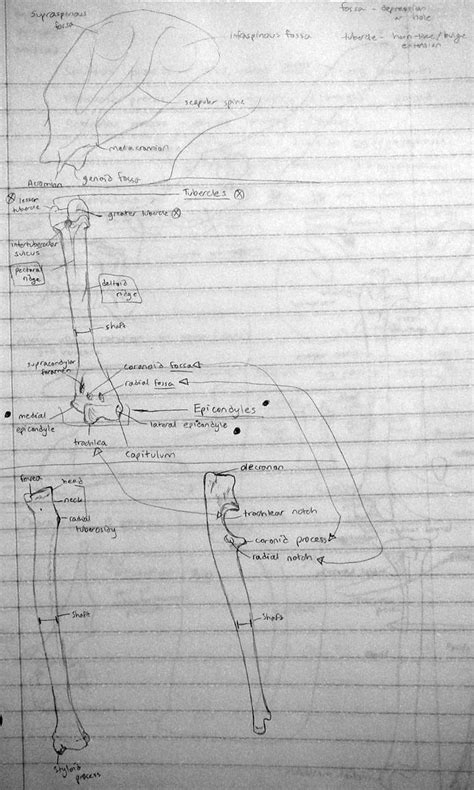 fossa - depression
or hole
tubercle -
extension
Supraspinous
fossa
infraspinous fossa
scapular spine
metacromion
Acromion
genoid fossa
Tubercles
lesser
tubercle
greater tubercle
intertubercular
sulcus
pectoral
ridge
deltoid
ridge
shaft
supracondylar
foramen
coronoid fossa
radial fossa
medial
epicondyle
Epicondyles
lateral epicondyle
trochlea
Capitulum
olecranon
fovea
head
neck
radial
tuberosity
trochlear notch
coronoid process
radial notch
shaft
shaft
styloid
process